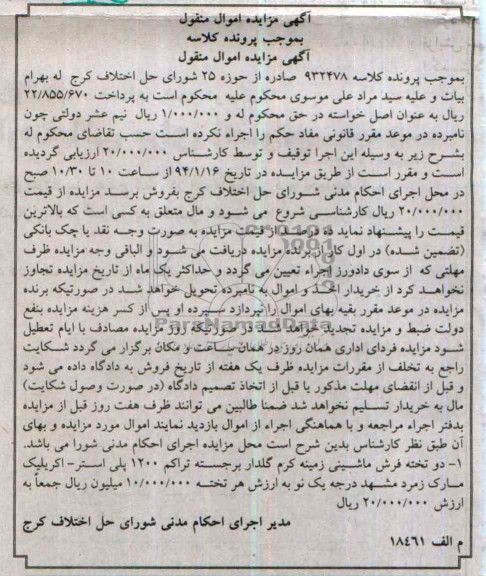 آگهی مزایده اموال منقول
بموجب پرونده کلاسه
آگهی مزایده اموال منقول
بموجب پرونده کلاسه ۹۳۲۴۷۸ صادره از حوزه ۲۵ شورای حل اختلاف کرج له بهرام
بیات و علیه سید مراد علی موسوی محکوم علیه محکوم است به پرداخت ۲۲/۸۵۵/۶۷۰
ریال به عنوان اصل خواسته در حق محکوم له و ۱/۰۰۰/۰۰۰ ریال نیم عشر دولتی چون
نامبرده در موعد مقرر قانونی مفاد حکم را اجراء نکرده است حسب تقاضای محکوم له
بشرح زیر به وسیله این اجرا توقیف و توسط کارشناس ۲۰/۰۰۰/۰۰۰ ارزیابی گردیده
است و مقرر است از طریق مزایده در تاریخ ۹۴/۱/۱۶ از ساعت ۱۰ تا ۱۰/۳۰ صبح
در محل اجرای احکام مدنی شورای حل اختلاف کرج بفروش برسد مزایده از قیمت
۲۰/۰۰۰/۰۰۰ ریال کارشناسی شروع می شود و مال متعلق به کسی است که بالاترین
قیمت را پیشنهاد نماید از قیمت مزایده به صورت وجه نقد یا چک بانکی
(تضمین شده) در اول کار از برنده مزایده دریافت می شود و الباقی وجه مزایده ظرف
مهلتی که از سوی دادورز اجراء تعیین می گردد و حداکثر یک ماه از تاریخ مزایده تجاوز
نخواهد کرد از خریدار اخذ و اموال به نامبرده تحویل خواهد شد در صورتیکه برنده
مزایده در موعد مقرر بقیه بهای اموال را نپردازد سپرده او پس از کسر هزینه مزایده بنفع
دولت ضبط و مزایده تجدید خواهد شد در صورتیکه روز مزایده مصادف با ایام تعطیل
شود مزایده فردای اداری همان روز در همان ساعت و مکان برگزار می گردد شکایت
راجع به تخلف از مقررات مزایده ظرف یک هفته از تاریخ فروش به دادگاه داده می شود
و قبل از انقضای مهلت مذکور یا قبل از اتخاذ تصمیم دادگاه (در صورت وصول شکایت)
مال به خریدار تسلیم نخواهد شد ضمنا طالبین می توانند ظرف هفت روز قبل از مزایده
بدفتر اجراء مراجعه و با هماهنگی اجراء از اموال بازدید نمایند اموال مورد مزایده و بهای
آن طبق نظر کارشناس بدین شرح است محل مزایده اجرای احکام مدنی شورا می باشد.
۱- دو تخته فرش ماشینی زمینه کرم گلدار برجسته تراکم ۱۲۰۰ پلی استر- اکریلیک
مارک زمرد مشهد درجه یک نو به ارزش هر تخته ۱۰/۰۰۰/۰۰۰ میلیون ریال جمعاً به
ارزش ۲۰/۰۰۰/۰۰۰ ریال
مدیر اجرای احکام مدنی شورای حل اختلاف کرج
م الف ۱۸۴۶۱